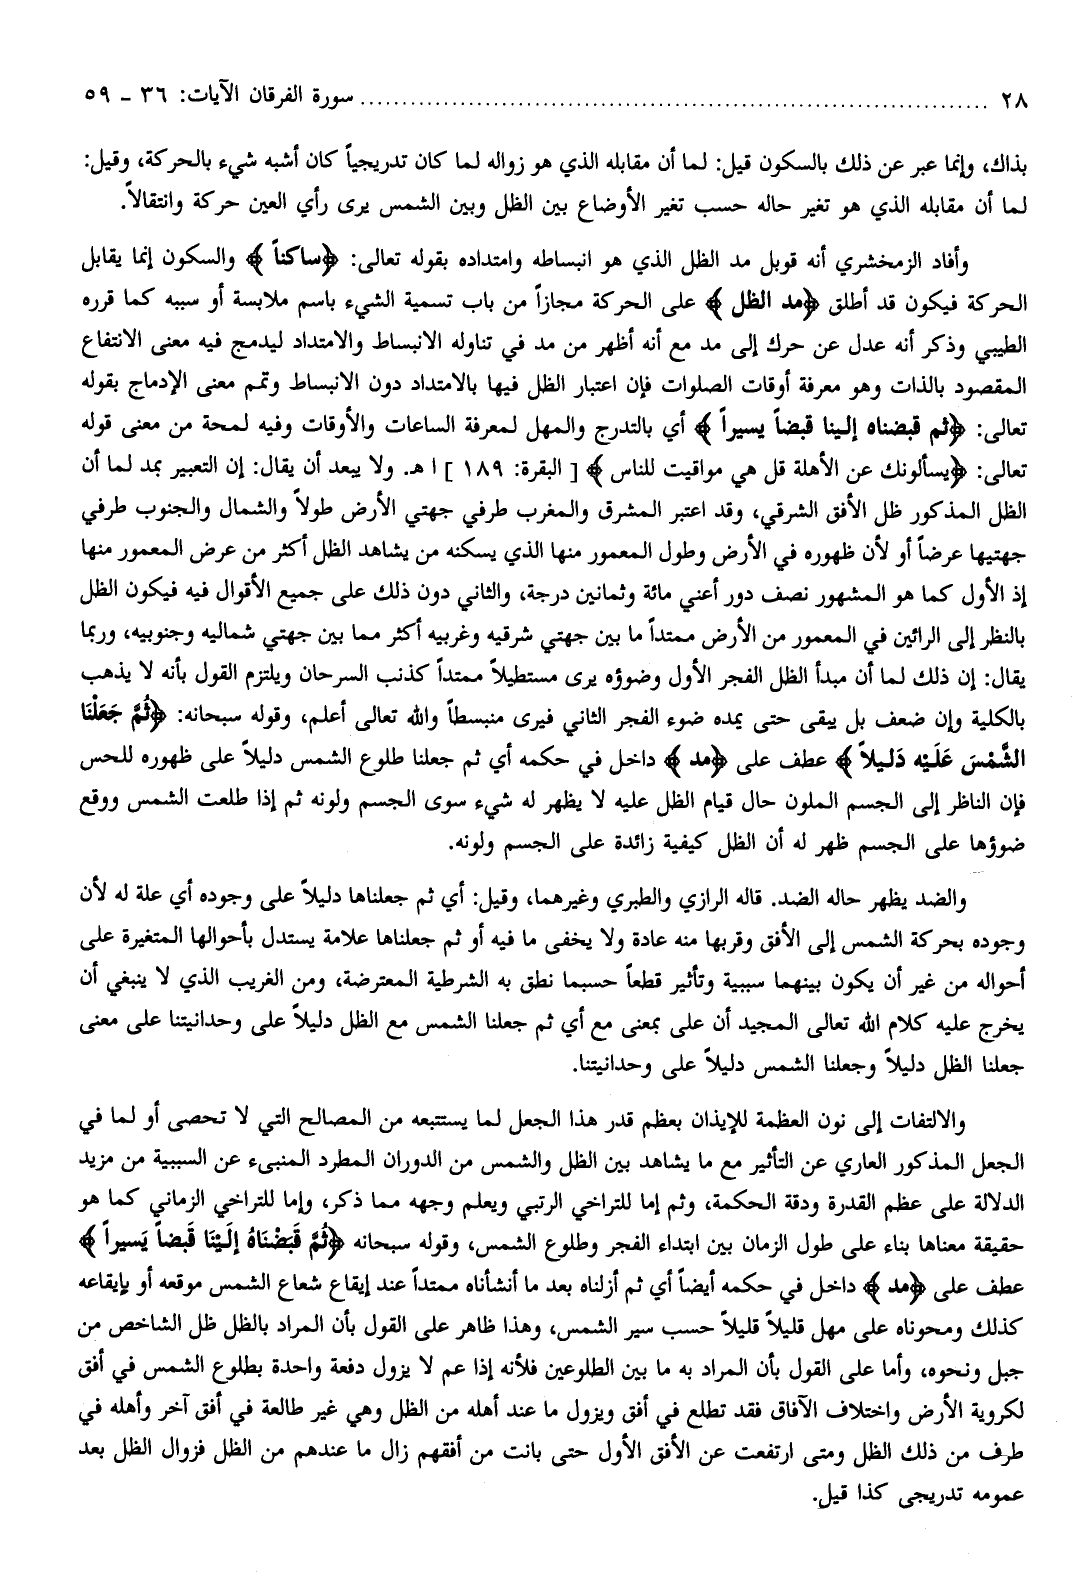 ٢٨ ........................................................................... سورة الفرقان الآيات: ٣٦ ـ ٥٩
بذاك، وإنما عبر عن ذلك بالسكون قيل: لما أن مقابله الذي هو زواله لما كان تدريجياً كان أشبه شيء بالحركة، وقيل:
لما أن مقابله الذي هو تغير حاله حسب تغير الأوضاع بين الظل وبين الشمس يرى رأي العين حركة وانتقالاً.
وأفاد الزمخشري أنه قوبل مد الظل الذي هو انبساطه وامتداده بقوله تعالى: ﴿ساكناً﴾ والسكون إنما يقابل
الحركة فيكون قد أطلق ﴿مد الظل﴾ على الحركة مجازاً من باب تسمية الشيء باسم ملابسة أو سببه كما قرره
الطيبي وذكر أنه عدل عن حرك إلى مد مع أنه أظهر من مد في تناوله الانبساط والامتداد ليدمج فيه معنى الانتفاع
المقصود بالذات وهو معرفة أوقات الصلوات فإن اعتبار الظل فيها بالامتداد دون الانبساط وتمم معنى الإدماج بقوله
تعالى: ﴿ثم قبضناه إلينا قبضاً يسيراً﴾ أي بالتدرج والمهل لمعرفة الساعات والأوقات وفيه لمحة من معنى قوله
تعالى: ﴿يسألونك عن الأهلة قل هي مواقيت للناس﴾ [ البقرة: ١٨٩ ] ا هـ. ولا يبعد أن يقال: إن التعبير بمد لما أن
الظل المذكور ظل الأفق الشرقي، وقد اعتبر المشرق والمغرب طرفي جهتي الأرض طولاً والشمال والجنوب طرفي
جهتيها عرضاً أو لأن ظهوره في الأرض وطول المعمور منها الذي يسكنه من يشاهد الظل أكثر من عرض المعمور منها
إذ الأول كما هو المشهور نصف دور أعني مائة وثمانين درجة، والثاني دون ذلك على جميع الأقوال فيه فيكون الظل
بالنظر إلى الرائين في المعمور من الأرض ممتداً ما بين جهتي شرقيه وغربيه أكثر مما بين جهتي شماليه وجنوبيه، وربما
يقال: إن ذلك لما أن مبدأ الظل الفجر الأول وضوؤه يرى مستطيلاً ممتداً كذنب السرحان ويلتزم القول بأنه لا يذهب
بالكلية وإن ضعف بل يبقى حتى يمده ضوء الفجر الثاني فيرى منبسطاً والله تعالى أعلم، وقوله سبحانه: ﴿ثُمَّ جَعَلْنَا
الشَّمْسَ عَلَيْه دَليلاً﴾ عطف على ﴿مد﴾ داخل في حكمه أي ثم جعلنا طلوع الشمس دليلاً على ظهوره للحس
فإن الناظر إلى الجسم الملون حال قيام الظل عليه لا يظهر له شيء سوى الجسم ولونه ثم إذا طلعت الشمس ووقع
ضوؤها على الجسم ظهر له أن الظل كيفية زائدة على الجسم ولونه.
والضد يظهر حاله الضد. قاله الرازي والطبري وغيرهما، وقيل: أي ثم جعلناها دليلاً على وجوده أي علة له لأن
وجوده بحركة الشمس إلى الأفق وقربها منه عادة ولا يخفى ما فيه أو ثم جعلناها علامة يستدل بأحوالها المتغيرة على
أحواله من غير أن يكون بينهما سببية وتأثير قطعاً حسبما نطق به الشرطية المعترضة، ومن الغريب الذي لا ينبغي أن
يخرج عليه كلام الله تعالى المجيد أن على بمعنى مع أي ثم جعلنا الشمس مع الظل دليلاً على وحدانيتنا على معنى
جعلنا الظل دليلاً وجعلنا الشمس دليلاً على وحدانيتنا.
والالتفات إلى نون العظمة للإيذان بعظم قدر هذا الجعل لما يستتبعه من المصالح التي لا تحصى أو لما في
الجعل المذكور العاري عن التأثير مع ما يشاهد بين الظل والشمس من الدوران المطرد المنبىء عن السببية من مزيد
الدلالة على عظم القدرة ودقة الحكمة، وثم إما للتراخي الرتبي ويعلم وجهه مما ذكر، وإما للتراخي الزماني كما هو
حقيقة معناها بناء على طول الزمان بين ابتداء الفجر وطلوع الشمس، وقوله سبحانه ﴿ثُمَّ قَبَضْنَاهُ إلَيْنَا قَبضاً يَسيراً﴾
عطف على ﴿مد﴾ داخل في حكمه أيضاً أي ثم أزلناه بعد ما أنشأناه ممتداً عند إيقاع شعاع الشمس موقعه أو بإيقاعه
كذلك ومحوناه على مهل قليلاً قليلاً حسب سير الشمس، وهذا ظاهر على القول بأن المراد بالظل ظل الشاخص من
جبل ونحوه، وأما على القول بأن المراد به ما بين الطلوعين فلأنه إذا عم لا يزول دفعة واحدة بطلوع الشمس في أفق
لكروية الأرض واختلاف الآفاق فقد تطلع في أفق ويزول ما عند أهله من الظل وهي غير طالعة في أفق آخر وأهله في
طرف من ذلك الظل ومتى ارتفعت عن الأفق الأول حتى بانت من أفقهم زال ما عندهم من الظل فزوال الظل بعد
عمومه تدريجي كذا قيل.